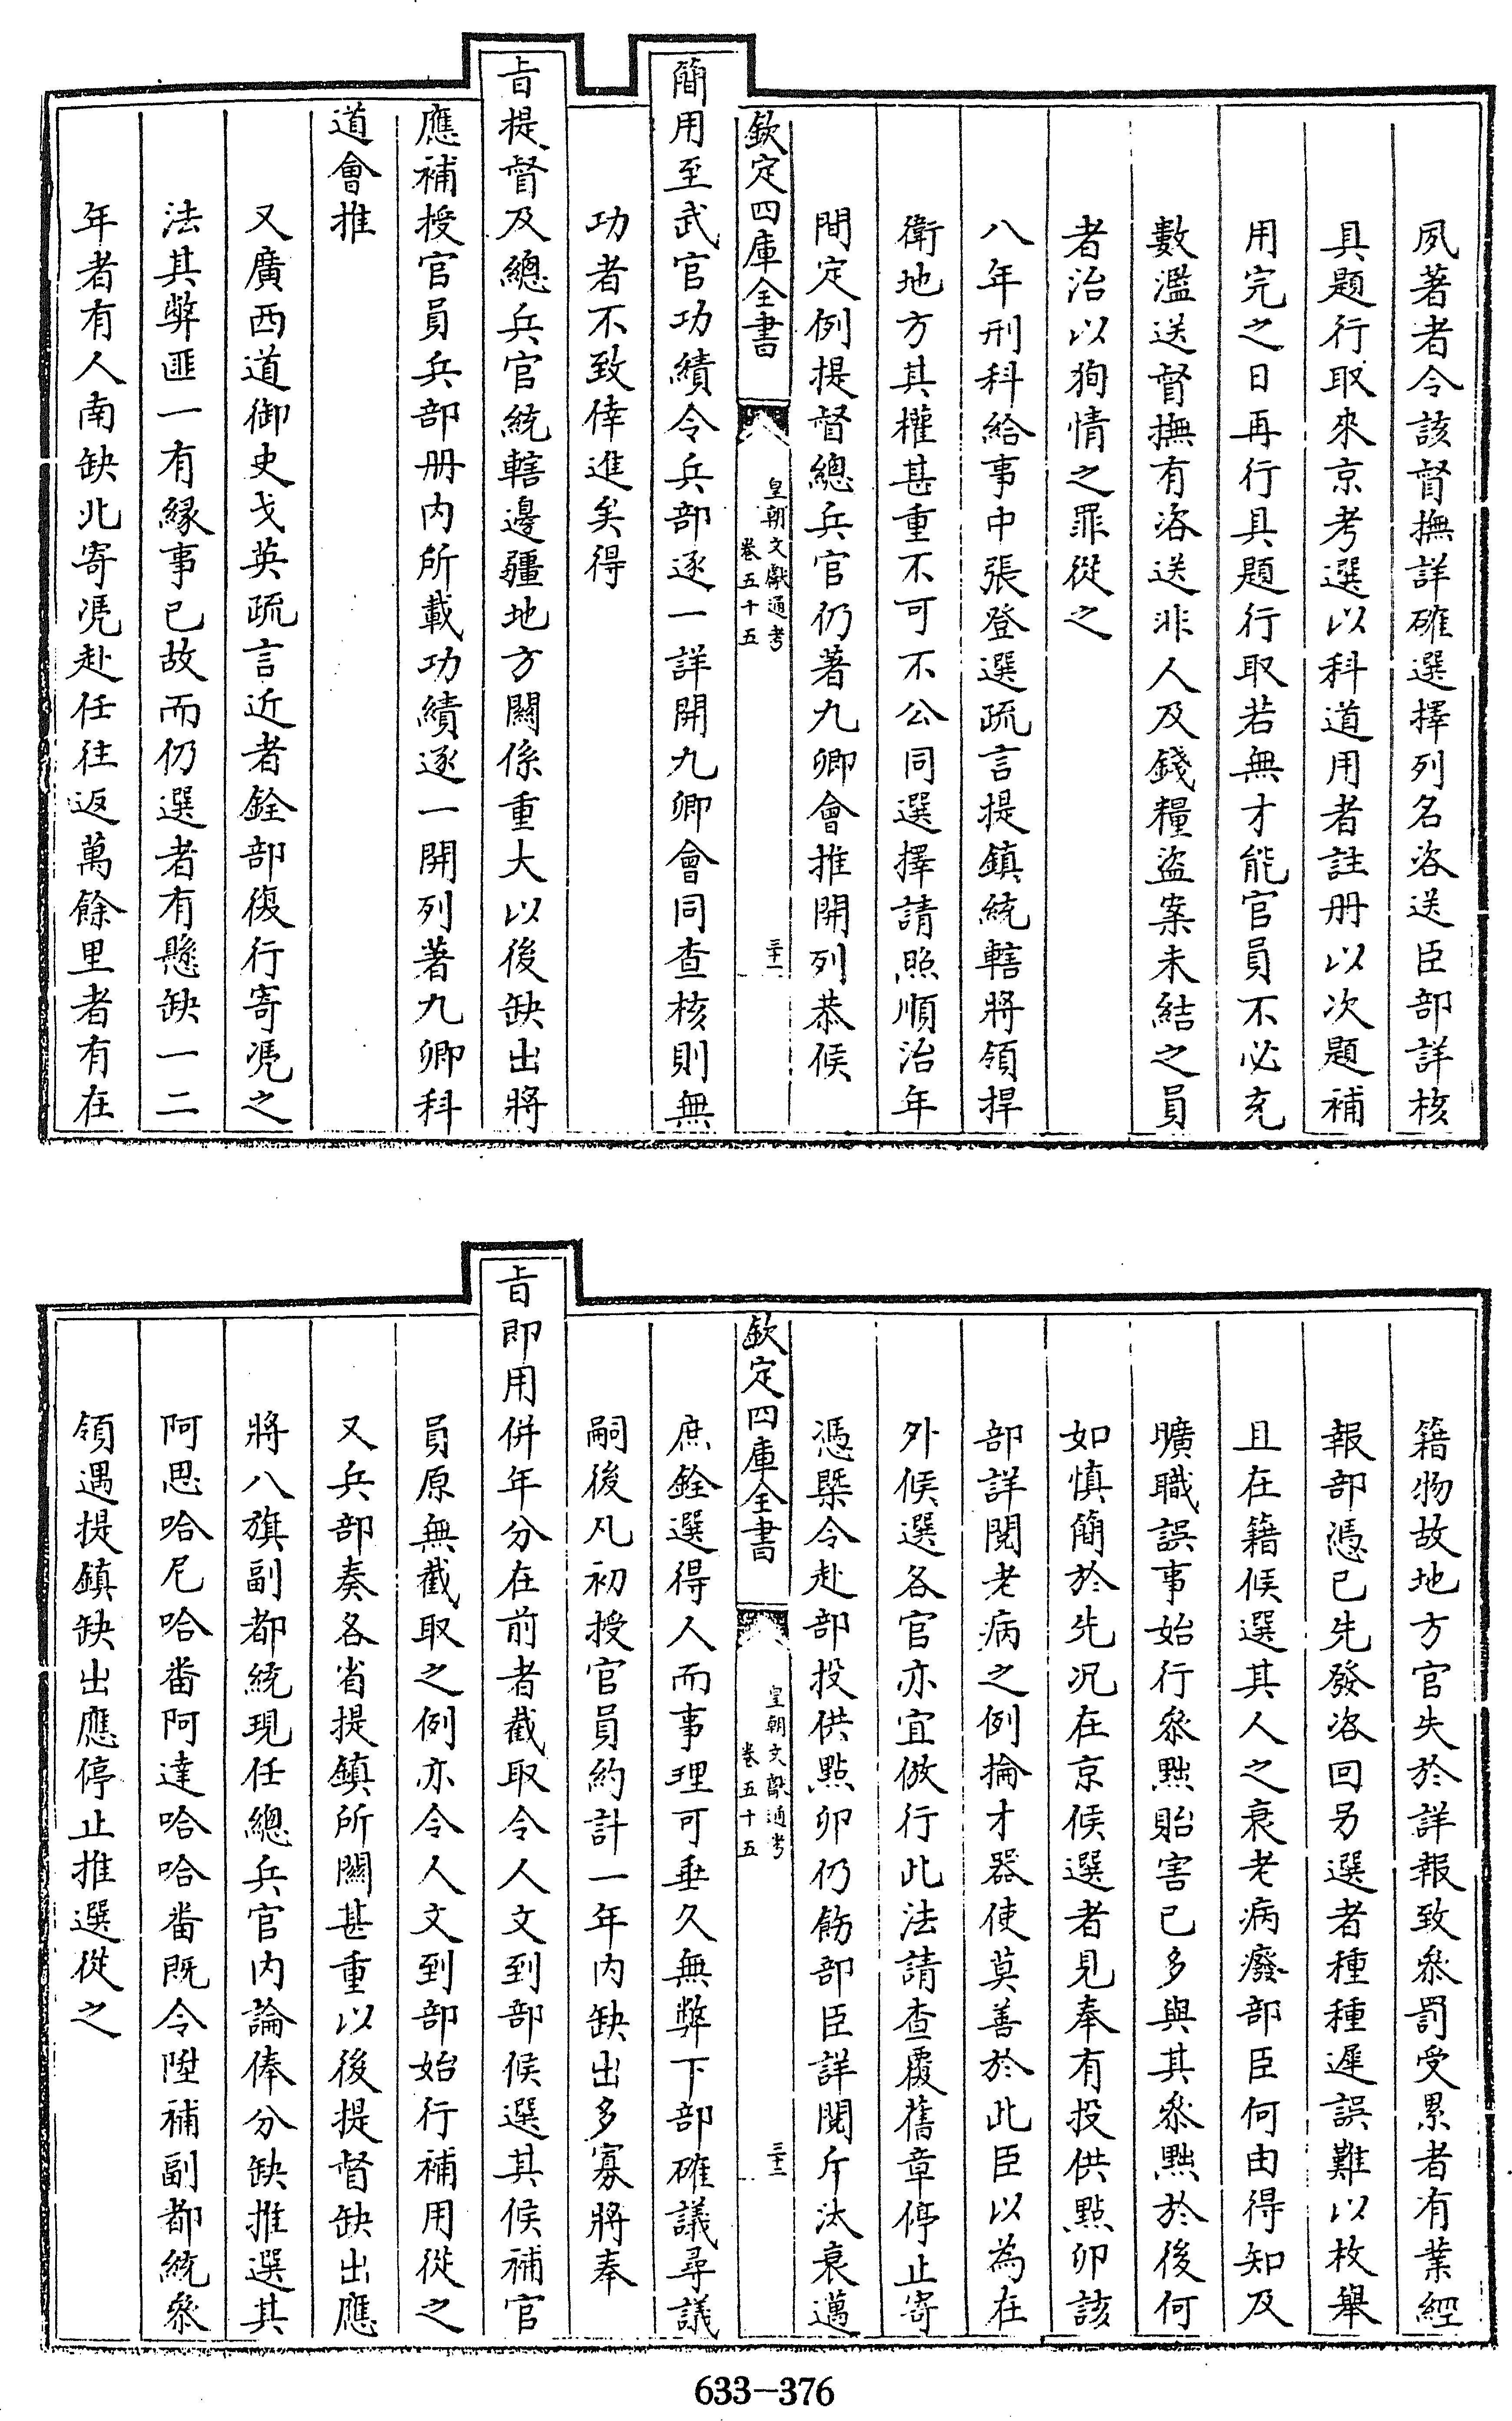 夙著者令該督撫詳確選擇列名咨送臣部詳核
具題行取來京考選以科道用者註册以次題補
用完之日再行具題行取若無才能官員不必充
數濫送督撫有咨送非人及錢糧盗案未結之員
者治以狥情之罪從之
八年刑科給事中張登選疏言提鎮統轄將領捍
衛地方其權甚重不可不公同選擇請照順治年
間定例提督總兵官仍著九卿會推開列恭候
欽定四庫全書
皇朝文獻通考
卷五十五
三十一
簡用至武官功績令兵部逐一詳開九卿會同查核則無
功者不致倖進矣得
㫖提督及總兵官統轄邊疆地方關係重大以後缺出將
應補授官員兵部册内所載功績逐一開列著九卿科
道會推
又廣西道御史戈英疏言近者銓部復行寄凴之
法其弊匪一有縁事已故而仍選者有懸缺一二
年者有人南缺北寄凴赴任往返萬餘里者有在
籍物故地方官失於詳報致叅罰受累者有業經
報部憑已先發咨回另選者種種遲誤難以枚舉
且在籍候選其人之衰老病廢部臣何由得知及
曠職誤事始行叅黜貽害已多與其叅黜於後何
如慎簡於先况在京候選者見奉有投供點卯該
部詳閱老病之例掄才器使莫善於此臣以為在
外候選各官亦宜倣行此法請查覆舊章停止寄
憑槩令赴部投供點卯仍飭部臣詳閱斥汰衰邁
欽定四庫全書
皇朝文獻通考
卷五十五
三十二
庶銓選得人而事理可垂久無弊下部確議尋議
嗣後凡初授官員約計一年内缺出多寡將奉
㫖即用併年分在前者截取令人文到部候選其候補官
員原無截取之例亦令人文到部始行補用從之
又兵部奏各省提鎮所關甚重以後提督缺出應
將八旗副都統現任總兵官内論俸分缺推選其
阿思哈尼哈畨阿達哈哈畨既令陞補副都統叅
領遇提鎮缺出應停止推選從之
633-376